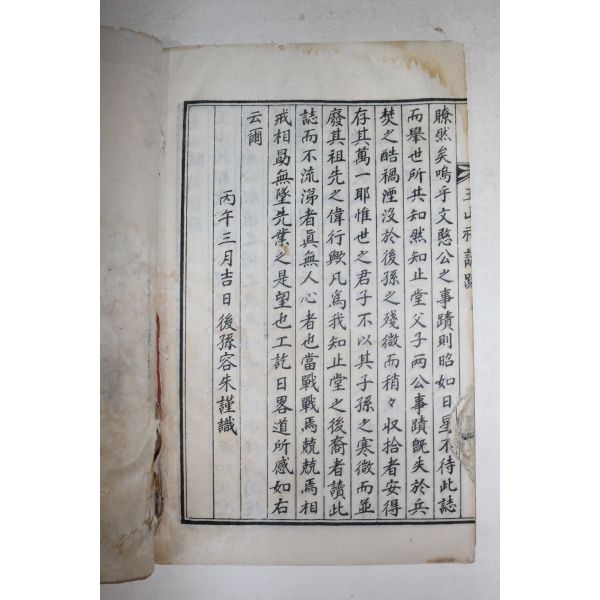 玉山祠誌跋
瞭然矣嗚乎文憨公之事蹟則昭如日星不待此誌
而舉世所共知然知止堂父子兩公事蹟旣失於兵
焚之酷禍湮沒於後孫之殘微而稍々収拾者安得
存其萬一耶惟世之君子不以其子孫之寒微而並
廢其祖先之偉行歟凡爲我知止堂之後裔者讀此
誌而不流涕者眞無人心者也當戰戰焉兢兢焉相
戒相勗無墜先業之是望也工訖日畧道所感如右
云爾
丙午三月吉日後孫容朱謹識